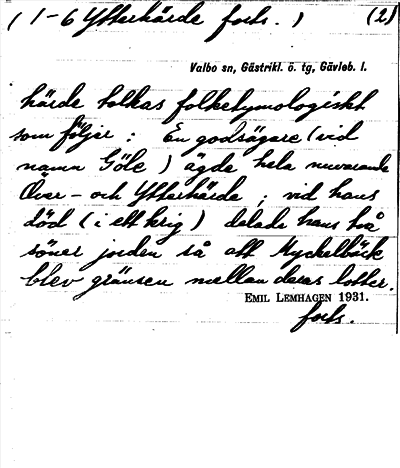 ( 1-6 Ytterhärde forts. ) (2)
Valbo sn, Gästrikl. ö. tg, Gävleb. l.
härde tolkas folketymologiskt
som följer : En godsägare (vid
namn Göle ) ägde hela nuvarande
Över- och Ytterhärde ; vid hans
död ( i ett krig ) delade hans två
söner jorden så att Myckelbäck
blev gränsen mellan deras lotter.
EMIL LEMHAGEN 1931.
forts.